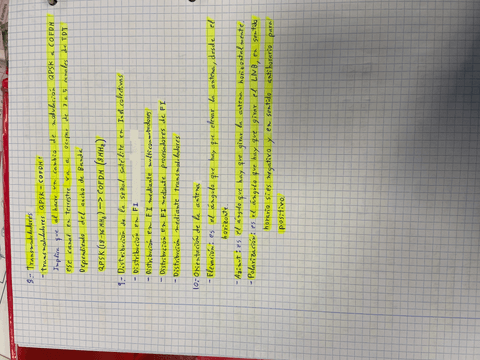 8- Transmoduladores
- transmoduladores QPSK - COFDM:
Implica que el hacer un cambio de modulación QPSK a COFDM
ese canal terrestre va a ocupar de 3 a 5 canales de TDT
Dependiendo del ancho de Banda
QPSK (18-36MHz) —> COFDM (8MHz)
9- Distribución de la señal satélite en Ind. colectivas
- Distribución en FI
- Distribución en FI mediante multiconmutadores
- Distribución en FI mediante procesadores de FI
- Distribución mediante transmoduladores
10- Orientación de la antena
- Elevación: es el ángulo que hay que elevar la antena, desde el
horizonte
- Azimut: es el ángulo que hay que girar la antena horizontalmente
- Polarización: es el ángulo que hay que girar el LNB, en sentido
horario si es negativo y en sentido antihorario para
positivo